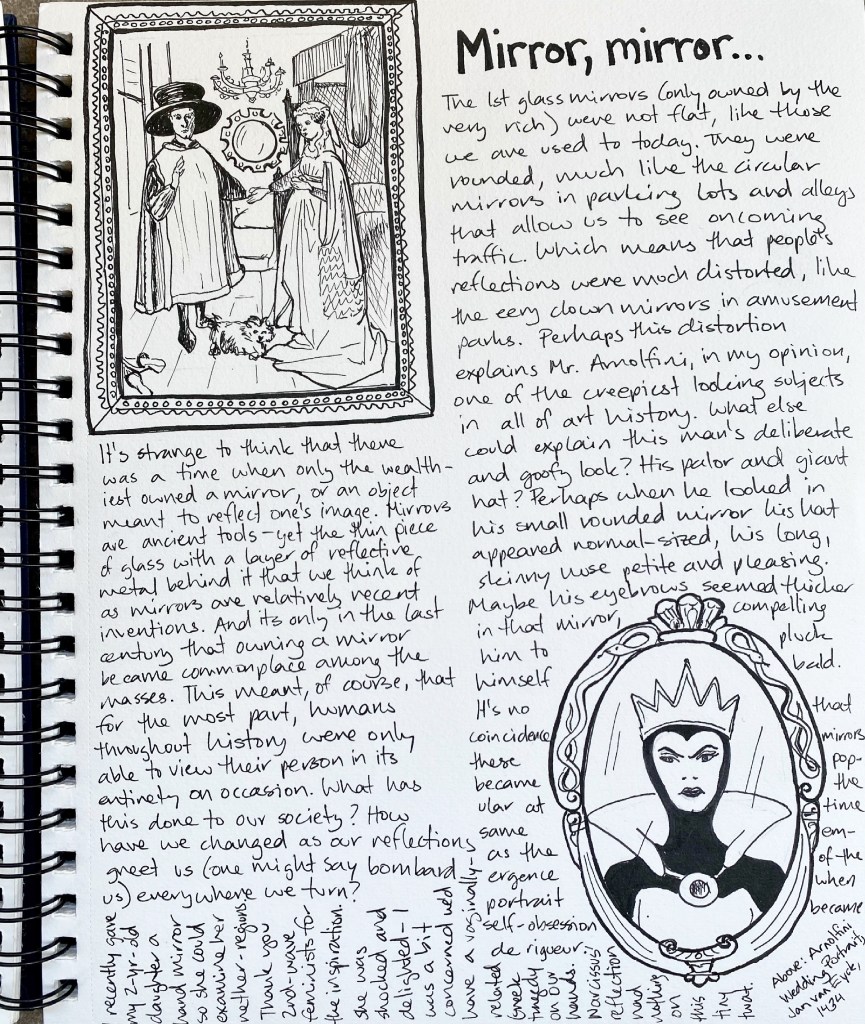 Mirror, mirror...
The 1st glass mirrors (only owned by the
very rich) were not flat, like those
we are used to today. They were
rounded, much like the circular
mirrors in parking lots and alleys
that allow us to see oncoming
traffic. Which means that people's
reflections were much distorted, like
the eery clown mirrors in amusement
parks. Perhaps this distortion
explains Mr. Arnolfini, in my opinion,
one of the creepiest looking subjects
in all of art history. What else
could explain this man's deliberate
and goofy look? His palor and giant
hat? Perhaps when he looked in
his small rounded mirror his hat
appeared normal-sized, his long,
skinny nose petite and pleasing.
Maybe his eyebrows seemed thicker
in that mirror, compelling
him to pluck
himself bald.
It's no that
coincidence mirrors
these pop-
became the
ular at time
same em-
as the of the
ergence when
portrait became
self-obsession
de rigueur.
It's strange to think that there
was a time when only the wealth-
iest owned a mirror, or an object
meant to reflect one's image. Mirrors
are ancient tools - yet the thin piece
of glass with a layer of reflective
metal behind it that we think of
as mirrors are relatively recent
inventions. And its only in the last
century that owning a mirror
became commonplace among the
masses. This meant, of course, that
for the most part, humans
throughout history were only
able to view their person in its
entirety on occasion. What has
this done to our society? How
have we changed as our reflections
greet us (one might say bombard
us) everywhere we turn?
I recently gave
my 2-yr-old
daughter a
hand mirror
so she could
examine her
nether-regions.
Thank you
2nd-wave
feminists for
the inspiration.
She was
shocked and
delighted - I
was a bit
concerned we'd
have a vaginally-
related
Greek
tragedy
on our
hands.
Narcissus'
reflection
had
nothing
on
this
tiny
twat.
Above: Arnolfini
Wedding Portrait,
Jan van Eyck,
1434